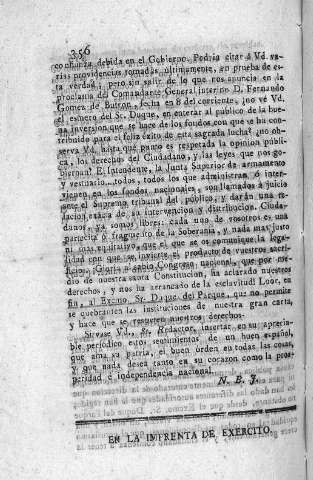 356
confianza debida en el Gobierno. Podria citar á Vd. va-
rias providencias tomadas ultimamente, en prueba de es-
ta verdad; pero sin salir de lo que nos anuncia en la
proclama del Comandante General interino D. Fernando
Gomez de Butron, fecha en 8 del corriente, ¿no vé Vd.
el esmero del Sr. Duque, en enterar al público de la bue-
na inversion que se hace de los fondos con que se ha con-
tribuido para el feliz éxito de esta sagrada lucha? ¿no ob-
serva Vd. hasta qué punto es respetada la opinion públi-
ca, los derechos del Ciudadano, y las leyes que nos go-
biernan? El Intendente, la Junta Superior de armamento
y vestuario... todos, todos los que administran, ó inter-
vienen en los fondos nacionales, son llamados á juicio
ante el Supremo tribunal del público, y darán una re-
lacion exâcta de su intervencion y distribucion. Ciuda-
danos, ya somos libres: cada uno de vosotros es una
partecita ó fragmento de la Soberanía, y nada mas justo
ni mas equitativo que el que se os comunique la lega-
lidad con que se invierte el producto de vuestros sacri-
ficios. ¡Gloria al Congreso nacional, que por me-
dio de nuestra santa Constitucion, ha aclarado nuestros
derechos, y nos ha arrancado de la esclavitud! Loor, en
fin, al Excmo. Sr. Duque del Parque, que no permite
se quebranten las instituciones de nuestra gran carta,
y hace que se respeten nuestros derechos.
Sirvase Vd., Sr. Redactor, insertar en su aprecia-
ble periódico estos sentimientos de un buen español,
que ama su patria, el buen órden en todas las cosas,
y que nada desea tanto en su corazon como la pros-
peridad é independencia nacional.
N. B. J.
EN LA IMPRENTA DE EXERCITO.